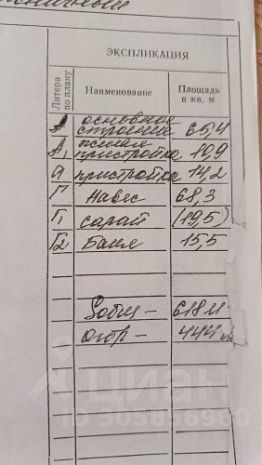 ЭКСПЛИКАЦИЯ
Литера по плану
Наименование
Площадь в кв. м
основное строение 65,4
А₁ жилая пристройка 10,9
а пристройка 14,2
Г Навес 68,3
Г₁ сарай (19,5)
Г₂ Баня 15,5
Sобщ — 618 м
Огор — 444
циан